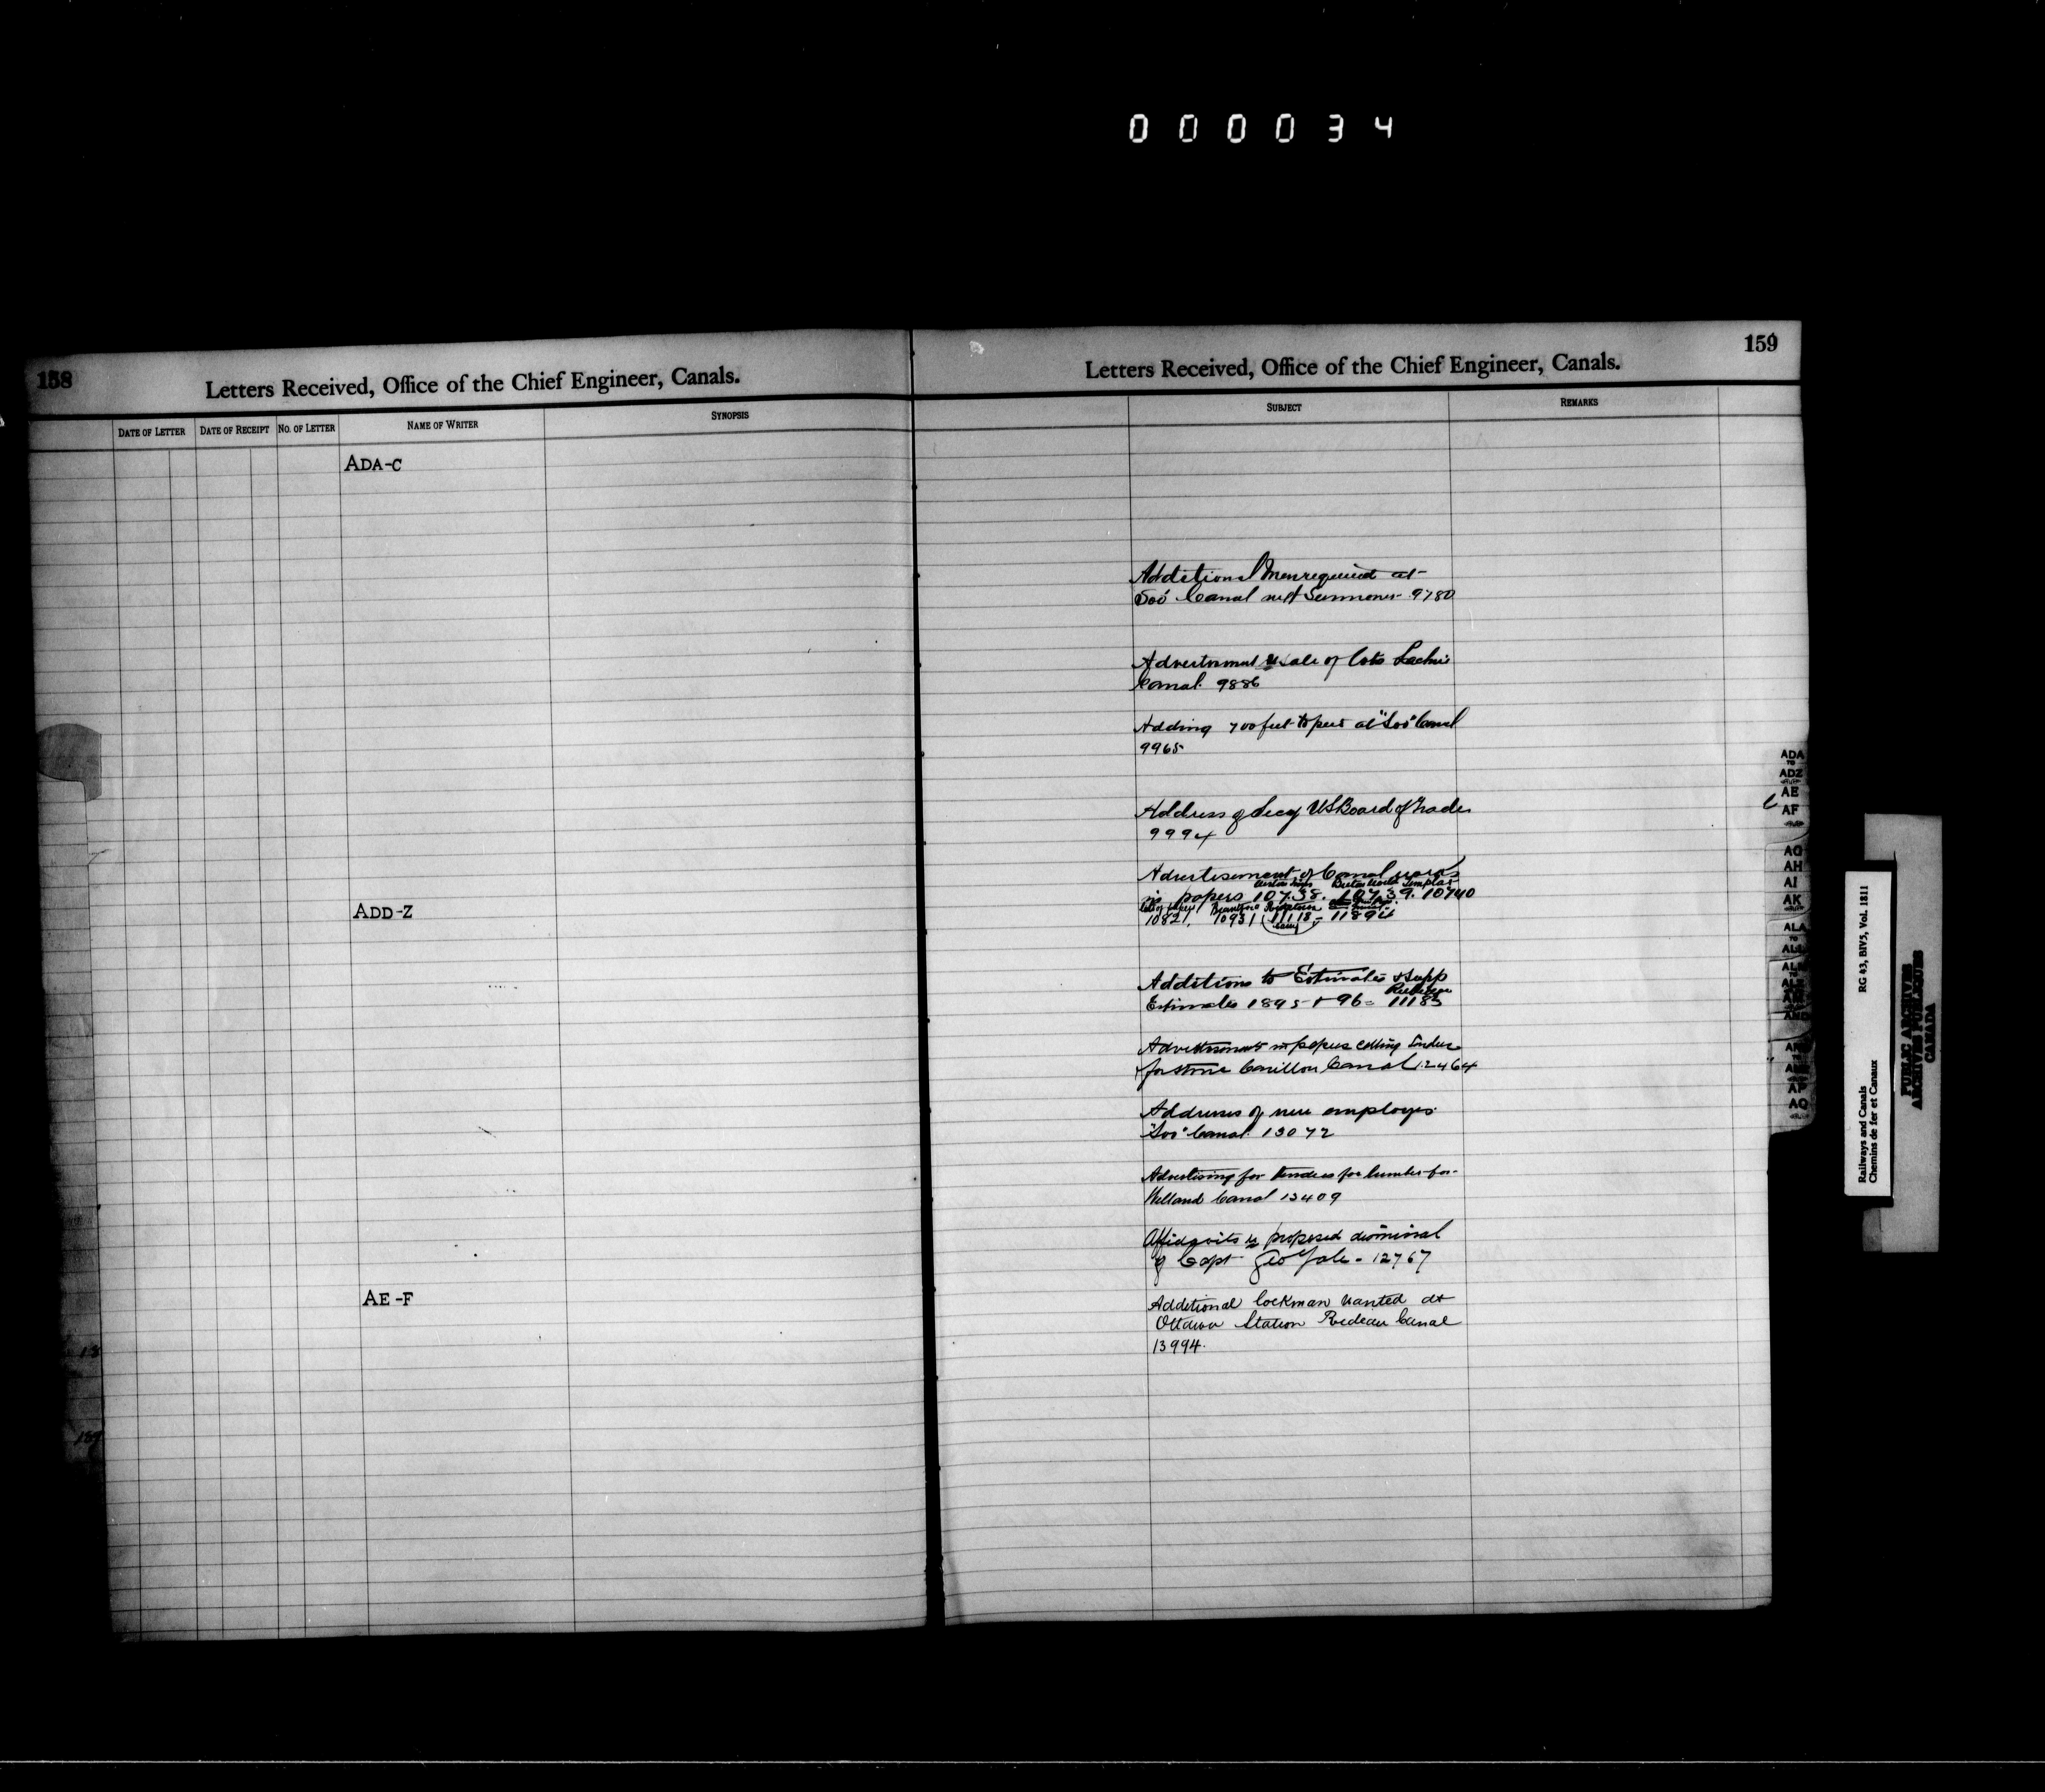 000034
158
Letters Received, Office of the Chief Engineer, Canals.
DATE OF LETTER DATE OF RECEIPT NO. OF LETTER NAME OF WRITER SYNOPSIS
ADA-C
ADD-Z
AE-F
159
Letters Received, Office of the Chief Engineer, Canals.
SUBJECT REMARKS
Additional men required at
"Soo" Canal next Summer 9780
Advertisment re sale of lots Lachine
Canal. 9886
Adding 700 feet to piers at "Soo" Canal
9965
Address of Secy US Board of Trade
9994
Advertisement of Canal
in papers 10738. 10739. 10740
10821, 10931 11118 - 11892
Additions to Estimates & Supp
Estimates 1895 + 96 = 11183
Advertisements in papers calling Tenders
for stone Carillon Canal 12464
Addresses of new employes
"Soo" Canal. 13072
Advertising for tenders for lumber for
Welland Canal 13409
Affidavits re proposed dismissal
of Capt Geo Yale - 12767
Additional lockman wanted at
Ottawa Station Rideau Canal
13994.
ADA
TO
ADZ
AE
AF
AQ
AH
AI
AK
ALA
TO
AP
AQ
RG 43, BIV5, Vol. 1811
Railways and Canals
Chemins de fer et Canaux
PUBLIC ARCHIVES
ARCHIVES PUBLIQUES
CANADA